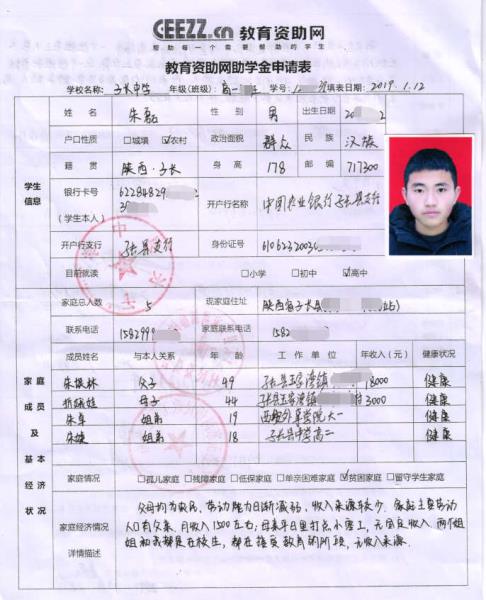 CEEZZ.cn 教育资助网
帮助每一个需要帮助的学生
教育资助网助学金申请表
学校名称: 子长中学 年级(班级): 高一 学号: 填表日期: 2019.1.12
姓名 朱磊 性别 男 出生日期 20 2
户口性质 □城填 ☑农村 政治面貌 群众 民族 汉族
籍贯 陕西·子长 身高 178 邮编 717300
学生信息
银行卡号 62284829
(学生本人) 开户行名称 中国农业银行子长县支行
开户行支行 子长县支行 身份证号 6106232003
目前就读 □小学 □初中 ☑高中
家庭总人数 5 现家庭住址 陕西省子长县
联系电话 1582999 家庭联系电话 1582
成员姓名 与本人关系 年龄 工作单位 年收入(元) 健康状况
朱振林 父子 49 子长县 镇 18000 健康
母子 44 子长县 镇 3000 健康
朱 姐弟 19 学院大一 健康
朱 姐弟 18 子长县中学高二 健康
家庭成员及基本经济状况
家庭情况 □孤儿家庭 □残障家庭 □低保家庭 □单亲困难家庭 ☑贫困家庭 □留守学生家庭
家庭经济情况
详情描述
父母均为农民,劳动能力日渐减弱,收入来源较少。家庭主要劳动
人口有父亲,月收入1500左右;母亲平日里打点小零工,无固定收入。两个姐
姐和我都是在校生,都在接受教育的阶段,无收入来源.